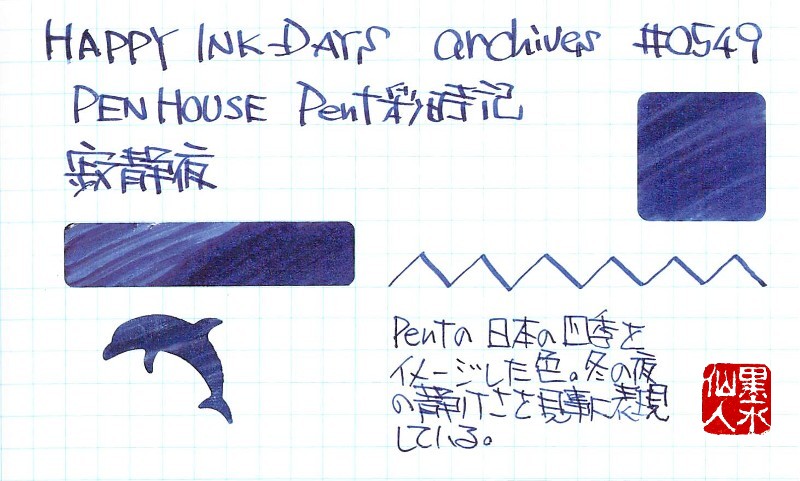 HAPPY INK-DAYS archives #0549
PENHOUSE Pent彩時記
寂静夜
Pentの日本の四季を
イメージした色。冬の夜
の静けさを見事に表現
している。
墨水
仙人